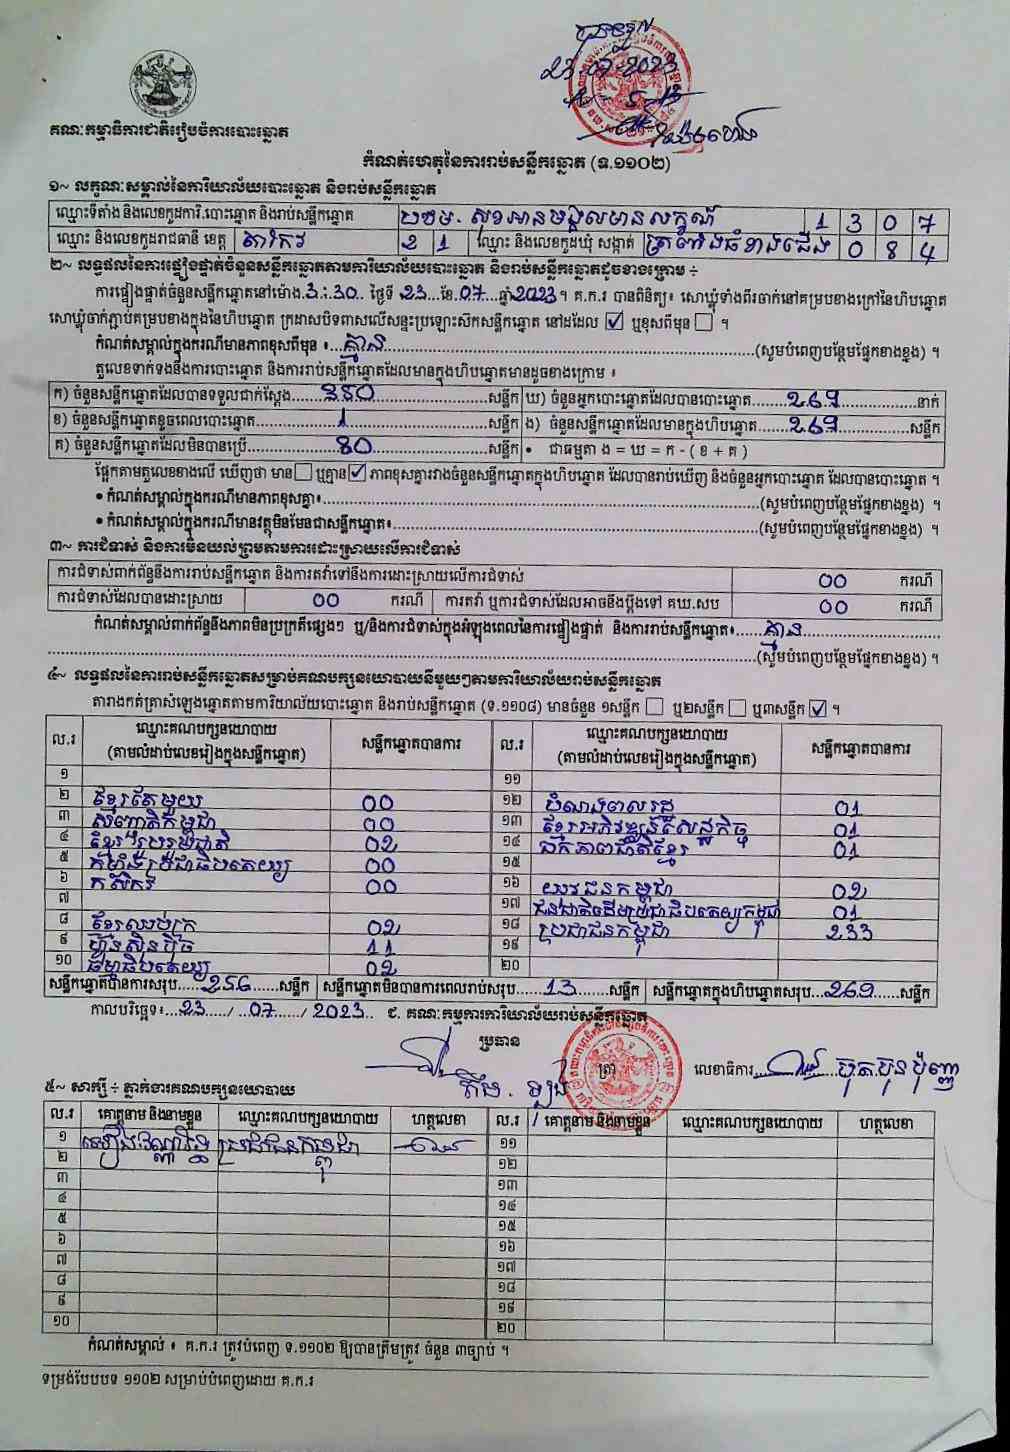 បានឃើញ
23.07.2023
គណៈកម្មាធិការជាតិរៀបចំការបោះឆ្នោត
កំណត់ហេតុនៃការរាប់សន្លឹកឆ្នោត (ទ.១១០២)
១~ លក្ខណៈសម្គាល់នៃការិយាល័យបោះឆ្នោត និងរាប់សន្លឹកឆ្នោត
ឈ្មោះទីតាំង និងលេខកូដការិ.បោះឆ្នោត និងរាប់សន្លឹកឆ្នោត បឋម. សុខអានមង្គលមានលក្ខណ៍ 1 3 0 7
ឈ្មោះ និងលេខកូដរាជធានី ខេត្ត តាកែវ 2 1 ឈ្មោះ និងលេខកូដឃុំ សង្កាត់ ត្រាំពាំងធំខាងជើង 0 8 4
២~ លទ្ធផលនៃការផ្ទៀងផ្ទាត់ចំនួនសន្លឹកឆ្នោតតាមការិយាល័យបោះឆ្នោត និងរាប់សន្លឹកឆ្នោតដូចខាងក្រោម ÷
ការផ្ទៀងផ្ទាត់ចំនួនសន្លឹកឆ្នោតនៅម៉ោង.3.:.30.. ថ្ងៃទី 23...ខែ.07...ឆ្នាំ2023។ គ.ក.រ បានពិនិត្យ៖ សោឃ្លុំទាំងពីរចាក់នៅគម្របខាងក្រៅនៃហិបឆ្នោត
សោឃ្លុំចាក់ភ្ជាប់គម្របខាងក្នុងនៃហិបឆ្នោត ក្រដាសបិទពាសលើសន្ទះប្រឡោះស៊កសន្លឹកឆ្នោត នៅដដែល ☑ ឬខុសពីមុន ☐ ។
កំណត់សម្គាល់ក្នុងករណីមានភាពខុសពីមុន ៖...គ្មាន...(សូមបំពេញបន្ថែមផ្នែកខាងខ្នង) ។
តួលេខទាក់ទងនឹងការបោះឆ្នោត និងការរាប់សន្លឹកឆ្នោតដែលមានក្នុងហិបឆ្នោតមានដូចខាងក្រោម ៖
ក) ចំនួនសន្លឹកឆ្នោតដែលបានទទួលជាក់ស្តែង......350......សន្លឹក ឃ) ចំនួនអ្នកបោះឆ្នោតដែលបានបោះឆ្នោត......269......នាក់
ខ) ចំនួនសន្លឹកឆ្នោតខូចពេលបោះឆ្នោត......1......សន្លឹក ង) ចំនួនសន្លឹកឆ្នោតដែលមានក្នុងហិបឆ្នោត......269......សន្លឹក
គ) ចំនួនសន្លឹកឆ្នោតដែលមិនបានប្រើ......80......សន្លឹក • ជាធម្មតា ង = ឃ = ក - ( ខ + គ )
ផ្អែកតាមតួលេខខាងលើ ឃើញថា មាន ☐ ឬគ្មាន ☑ ភាពខុសគ្នារវាងចំនួនសន្លឹកឆ្នោតក្នុងហិបឆ្នោត ដែលបានរាប់ឃើញ និងចំនួនអ្នកបោះឆ្នោត ដែលបានបោះឆ្នោត ។
• កំណត់សម្គាល់ក្នុងករណីមានភាពខុសគ្នា៖......(សូមបំពេញបន្ថែមផ្នែកខាងខ្នង) ។
• កំណត់សម្គាល់ក្នុងករណីមានវត្ថុមិនមែនជាសន្លឹកឆ្នោត៖......(សូមបំពេញបន្ថែមផ្នែកខាងខ្នង) ។
៣~ ការជំទាស់ និងការមិនយល់ព្រមតាមការដោះស្រាយលើការជំទាស់
ការជំទាស់ពាក់ព័ន្ធនឹងការរាប់សន្លឹកឆ្នោត និងការតវ៉ាទៅនឹងការដោះស្រាយលើការជំទាស់ 00 ករណី
ការជំទាស់ដែលបានដោះស្រាយ 00 ករណី ការតវ៉ា ឬការជំទាស់ដែលអាចនឹងប្តឹងទៅ គឃ.សប 00 ករណី
កំណត់សម្គាល់ពាក់ព័ន្ធនឹងភាពមិនប្រក្រតីផ្សេងៗ ឬ/និងការជំទាស់ក្នុងអំឡុងពេលនៃការផ្ទៀងផ្ទាត់ និងការរាប់សន្លឹកឆ្នោត៖......គ្មាន......
......(សូមបំពេញបន្ថែមផ្នែកខាងខ្នង) ។
៤~ លទ្ធផលនៃការរាប់សន្លឹកឆ្នោតសម្រាប់គណបក្សនយោបាយនីមួយៗតាមការិយាល័យរាប់សន្លឹកឆ្នោត
តារាងកត់ត្រាសំឡេងឆ្នោតតាមការិយាល័យបោះឆ្នោត និងរាប់សន្លឹកឆ្នោត (ទ.១១០៨) មានចំនួន ១សន្លឹក ☐ ឬ២សន្លឹក ☐ ឬ៣សន្លឹក ☑ ។
ល.រ ឈ្មោះគណបក្សនយោបាយ (តាមលំដាប់លេខរៀងក្នុងសន្លឹកឆ្នោត) សន្លឹកឆ្នោតបានការ ល.រ ឈ្មោះគណបក្សនយោបាយ (តាមលំដាប់លេខរៀងក្នុងសន្លឹកឆ្នោត) សន្លឹកឆ្នោតបានការ
១ ១១
២ ខ្មែរតែមួយ 00 ១២ បំណងពលរដ្ឋ 01
៣ សញ្ជាតិកម្ពុជា 00 ១៣ ខ្មែរអភិវឌ្ឍន៍សេដ្ឋកិច្ច 01
៤ ខ្មែររួបរួមជាតិ 02 ១៤ ឯកភាពជាតិខ្មែរ 01
៥ កម្លាំងប្រជាធិបតេយ្យ 00 ១៥
៦ កសិករ 00 ១៦ យុវជនកម្ពុជា 02
៧ ១៧ ជនជាតិដើមប្រជាធិបតេយ្យកម្ពុជា 01
៨ ខ្មែរឈប់ក្រ 02 ១៨ ប្រជាជនកម្ពុជា 233
៩ ហ៊្វុនស៊ិនប៉ិច 11 ១៩
១០ ធម្មាធិបតេយ្យ 02 ២០
សន្លឹកឆ្នោតបានការសរុប......256......សន្លឹក សន្លឹកឆ្នោតមិនបានការពេលរាប់សរុប......13......សន្លឹក សន្លឹកឆ្នោតក្នុងហិបឆ្នោតសរុប...269......សន្លឹក
កាលបរិច្ឆេទ៖...23...../ ...07....../ 2023.. ជ. គណៈកម្មការការិយាល័យរាប់សន្លឹកឆ្នោត
ប្រធាន
ត្រា
លេខាធិការ...... ប៊ុត.ប៊ុនប៉ុញ្ញ
៥~ សាក្សី ÷ ភ្នាក់ងារគណបក្សនយោបាយ
ល.រ គោត្តនាម និងនាមខ្លួន ឈ្មោះគណបក្សនយោបាយ ហត្ថលេខា ល.រ គោត្តនាម និងនាមខ្លួន ឈ្មោះគណបក្សនយោបាយ ហត្ថលេខា
១ ប្រជាជនកម្ពុជា ១១
២ ១២
៣ ១៣
៤ ១៤
៥ ១៥
៦ ១៦
៧ ១៧
៨ ១៨
៩ ១៩
១០ ២០
កំណត់សម្គាល់ ៖ គ.ក.រ ត្រូវបំពេញ ទ.១១០២ ឱ្យបានត្រឹមត្រូវ ចំនួន ៣ច្បាប់ ។
ទម្រង់បែបបទ ១១០២ សម្រាប់បំពេញដោយ គ.ក.រ